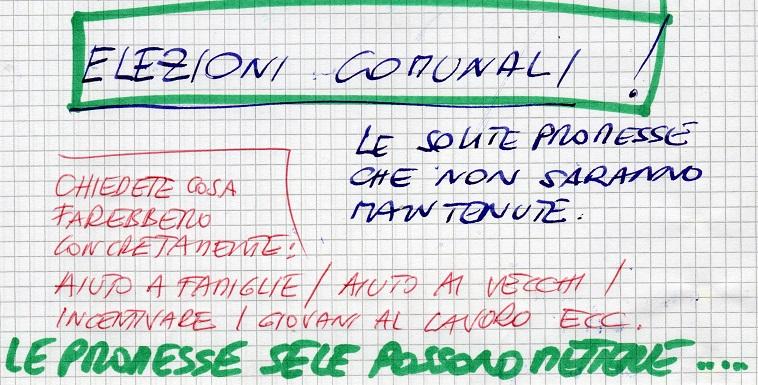 ELEZIONI COMUNALI !
LE SOLITE PROMESSE
CHE NON SARANNO
MANTENUTE.
CHIEDETE COSA
FAREBBERO
CONCRETAMENTE!
AIUTO A FAMIGLIE / AIUTO AI VECCHI /
INCENTIVARE I GIOVANI AL LAVORO ECC.
LE PROMESSE SELE POSSONO METTERE .....